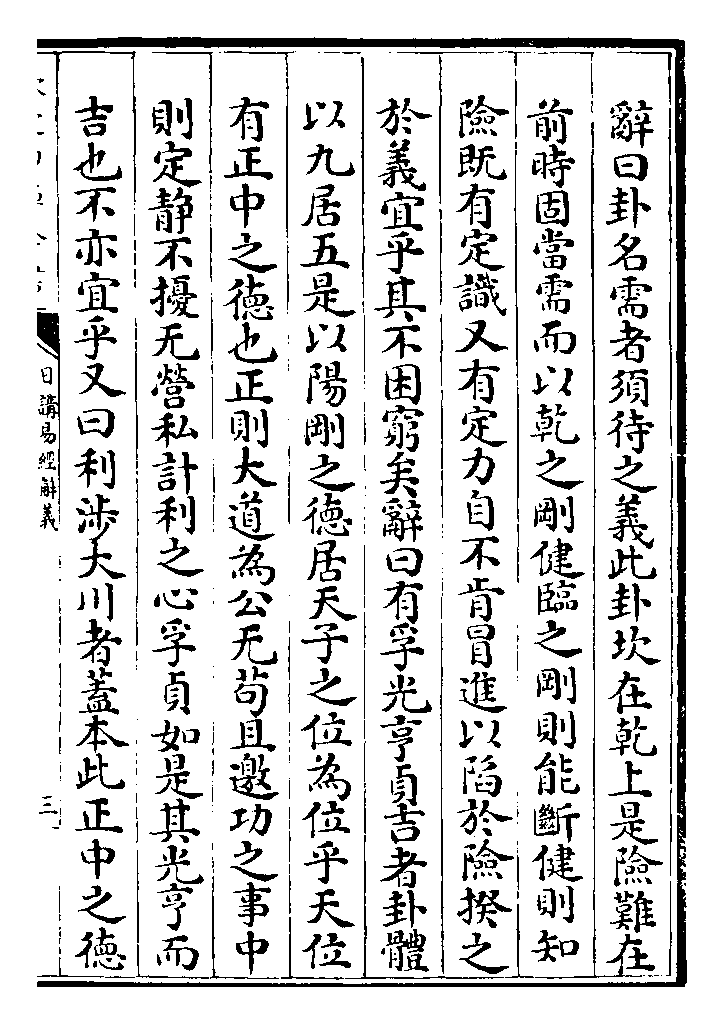 辭曰卦名需者須待之義此卦坎在乾上是險難在
前時固當需而以乾之剛健臨之剛則能斷健則知
險既有定識又有定力自不肯冒進以陷於險揆之
於義宜乎其不困窮矣辭曰有孚光亨貞吉者卦體
以九居五是以陽剛之德居天子之位為位乎天位
有正中之德也正則大道為公无苟且邀功之事中
則定靜不擾无營私計利之心孚貞如是其光亨而
吉也不亦宜乎又曰利涉大川者蓋本此正中之德
日講易經解義
三